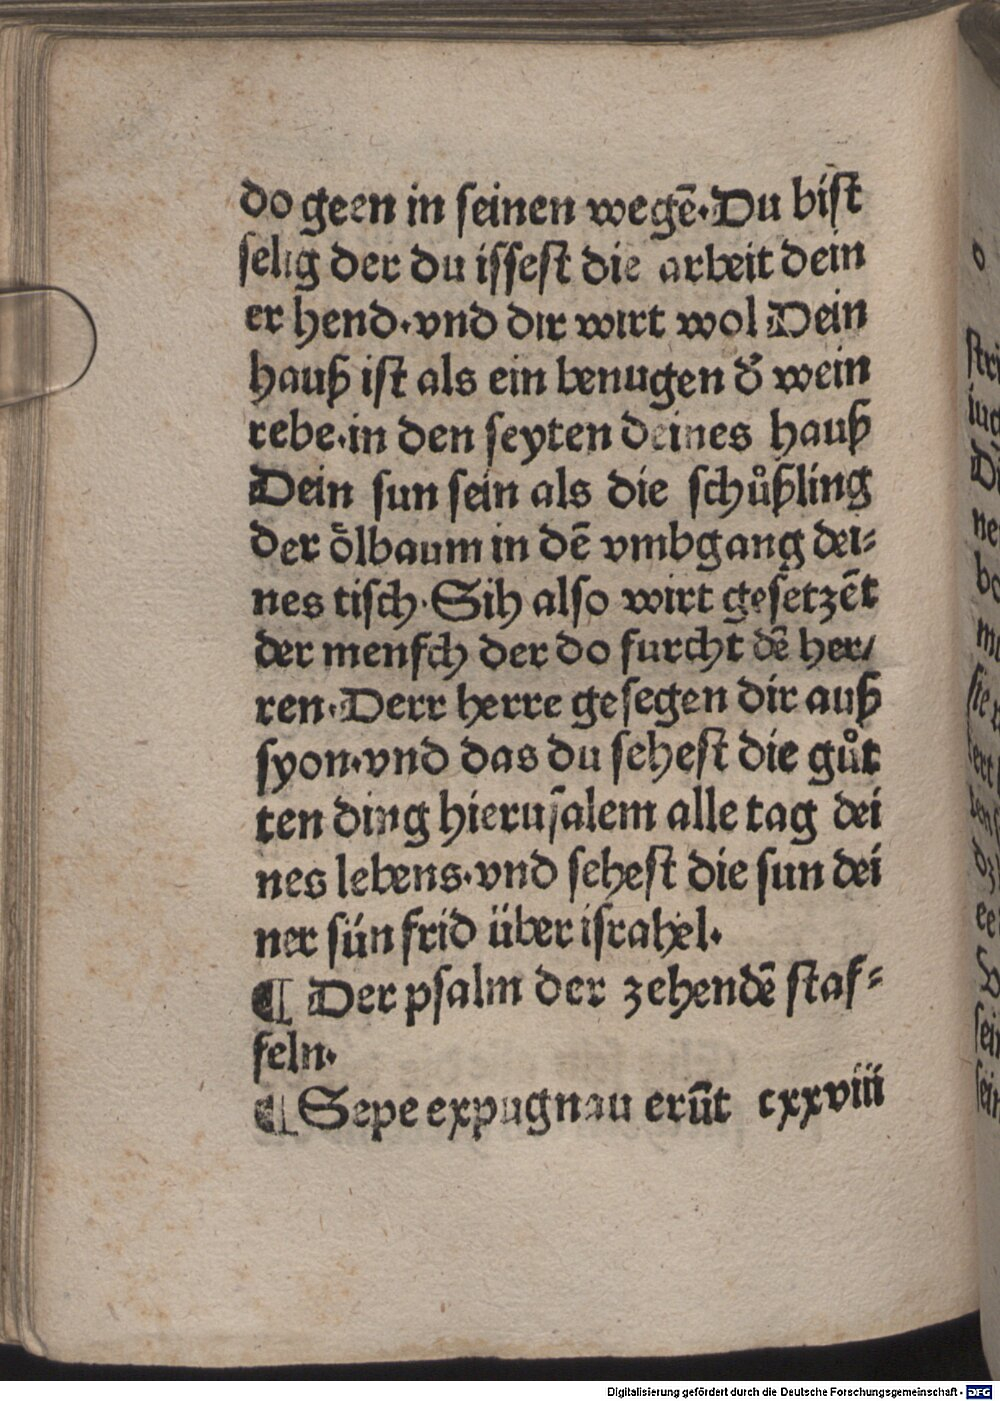 do geen in seinen wegē·Du bist
selig der du issest die arbeit dein
er hend·vnd dir wirt wol Dein
hauß ist als ein benugen d̕ wein
rebe·in den seyten deines hauß
Dein sun sein als die schůßling
der oͤlbaum in dē vmbgang dei⸗
nes tisch·Sih also wirt gesetzēt
der mensch der do furcht dē her/
ren·Derr herre gesegen dir auß
syon·vnd das du sehest die gůt
ten ding hierusalem alle tag dei
nes lebens·vnd sehest die sun dei
ner sún frid über israhel·
¶ Der psalm der zehendē staf⸗
feln·
¶ Sepe expugnau erūt cxxviii
Digitalisierung gefördert durch die Deutsche Forschungsgemeinschaft - DFG